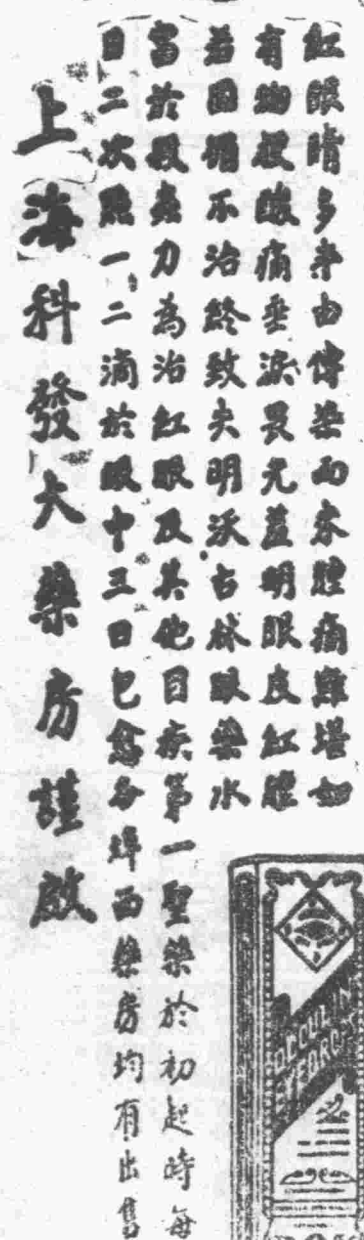 紅眼睛多半由傳染而來腫痛難堪如
有物梗酸痛垂淚畏光羞明眼皮紅腫
若因循不治終致失明沃古林眼藥水
富於殺虫力為治紅眼及其他目疾第一聖藥於初起時每
日二次點一二滴於眼中三日包愈各埠西藥房均有出售
上海科發大藥房謹啟
OCCULIN
EYEDROPS